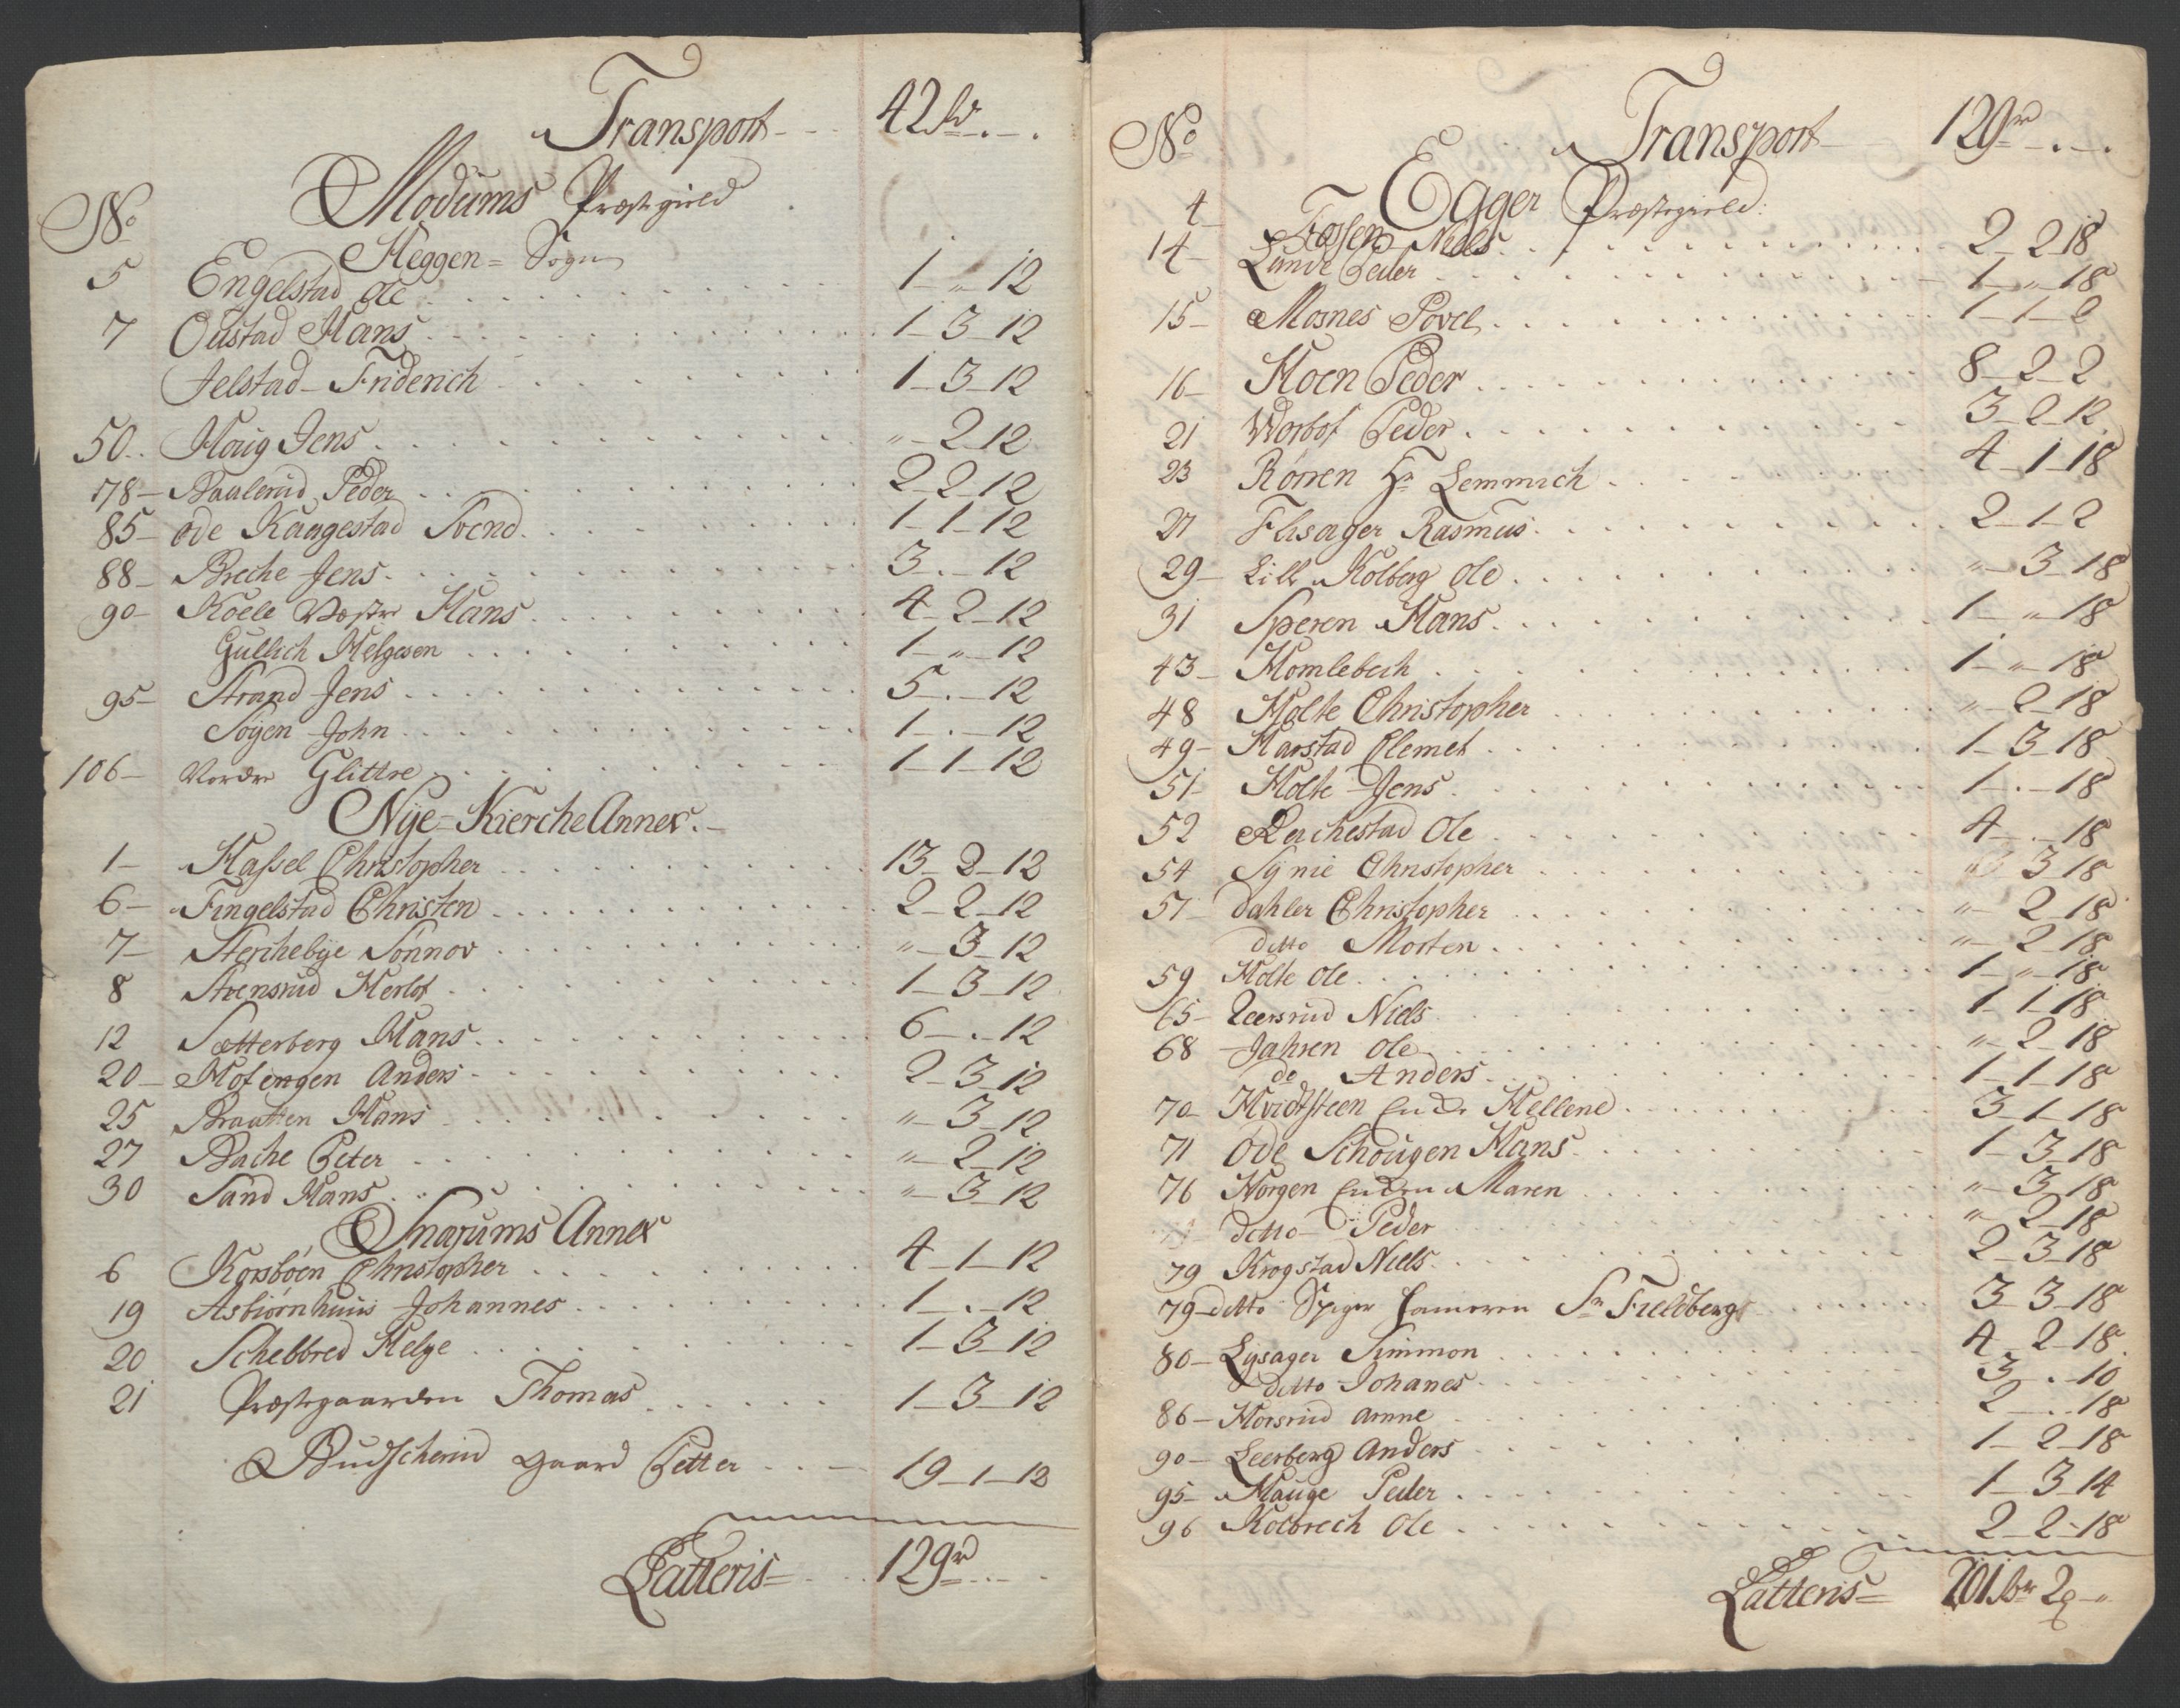 Transport 42
No
Modums Præstegield
Heggen Sogn
5 Engelstad Ole 1 - " - 12
7 Oustad Hans 1 - 3 - 12
Jelstad Friderich 1 - 3 - 12
50 Houg Jens " - 2 - 12
78 Baalerud Peder 2 - 2 - 12
85 Ode Kaagestad Svend 1 - 1 - 12
88 Breche Jens 3 - . - 12
90 Koele Væstre Hans 4 - 2 - 12
Gullich Helgesen 1 - " - 12
95 Strand Jens 5 - . - 12
Søgen John 1 - . - 12
106 Nordre Glittre 1 - 1 - 12
Nye-Kierche Annex
1 Hassel Christopher 13 - 2 - 12
6 Fingelstad Christen 2 - 2 - 12
7 Sterchebye Sønnov " - 3 - 12
8 Stensrud Herlof 1 - 3 - 12
12 Sætterberg Hans 6 - . - 12
20 Mofengen Anders 2 - 3 - 12
25 Braatten Hans " - 3 - 12
27 Bache Peter " - 2 - 12
30 Sand Hans " - 3 - 12
Snarums Annex
6 Korsbøen Christopher 4 - 1 - 12
19 Asbiørnhuus Johannes 1 - . - 12
20 Schebbred Helge 1 - 3 - 12
21 Præstegaarden Thomas 1 - 3 - 12
Budscherud Gaard Petter 19 - 1 - 12
Latteris 129 r
No
Transport 129 r
Eger Præstegield
4 Fossen Niels 2 - 2 18
14 Lunde Peder 1 - " - 18
15 Mosnes Povel 1 - 1 - 2
16 Moen Peder 8 - 2 - 2
21 Worbof Peder 3 - 2 - 12
23 Rørren Hr Lemmich 4 - 1 - 18
27 Flisager Rasmus 2 - 1 - 2
29 Lille Kolberg Ole " - 3 - 18
31 Speren Hans 1 - " - 18
43 Homlebech 1 - " - 18
48 Holte Christopher " - 2 - 18
49 Harstad Clemet 1 - 3 - 18
51 Holte Jens 1 - . - 18
52 Rachestad Ole 4 - . - 18
54 Synie Christopher 3 18
57 Dahler Christopher " - 2 - 18
ditto Morten " - 2 - 18
59 Holte Ole 1 - " - 18
65 Leersrud Niels 1 - 1 - 18
68 Jahren Ole " - 2 - 18
do Anders 1 - 1 - 18
70 Hvidtsteen Hellene 3 - 1 - 18
71 Ode Schougen Hans 1 - 3 - 18
76 Horgen Maren " - 3 - 18
ditto Peder " - 2 - 18
79 Krogstad Niels 2 - 3 - 18
79 ditto Sr Fieldberg 3 - 3 - 18
80 Lysager Simmon 4 - 2 - 18
ditto Johanes 3 - . - 10
86 Horsrud Arnne 2 - . - 18
90 Leerberg Anders 1 - 2 - 18
95 Hauge Peder 1 - 3 - 14
96 Kolbrech Ole 2 - 2 - 18
Latteris 201 2